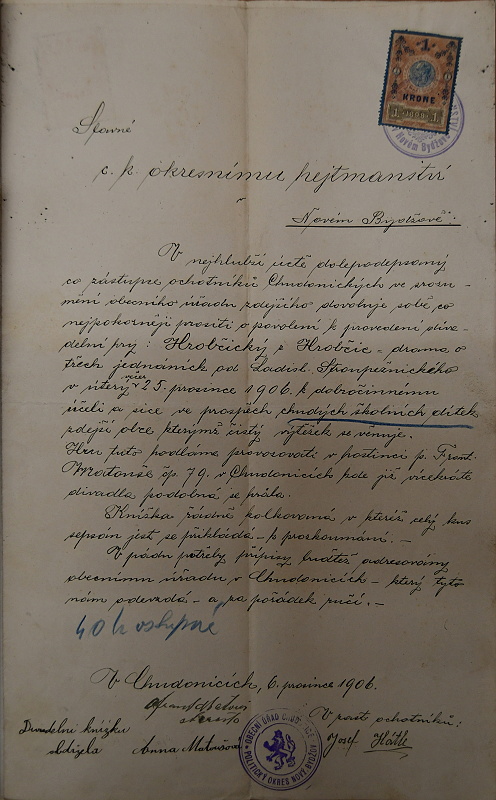 1
KRONE
1 1898 1
Novém Bydžov
Slavné
c. k. okresnímu hejtmanství
v
Novém Bydžově.
V nejhlubší úctě dolepodepsaný
co zástupce ochotníků Chudonických ve srozu-
mění obecního úřadu zdejšího dovoluje sobě co
nejpokorněji prositi o povolení k provedení diva-
delní hry: Hrobčický z Hrobčic - drama o
třech jednáních od Ladisl. Stroupežnického
večer
v úterý 25. prosince 1906. k dobročinnému
účeli a sice ve prospěch chudých školních dítek
zdejší obce kterýmž čistý výtěžek se věnuje.
Hru tuto hodláme provozovati v hostinci p. Frant.
čp. 79. v Chudonicích kde již vícekráte
divadla podobná se hrála.
Knížka řádně kolkovaná v kteréž celý kus
sepsán jest se přikládá - k proskoumání. -
V pádu potřeby přípisy buďtež adresovány
obecnímu úřadu v Chudonicích - který tyto
nám odevzdá - a za pořádek ručí. -
40 h vstupné
V Chudonicích, 6. prosince 1906.
starosta
Divadelní knížku
Anna Matoušová
OBECNÍ ÚŘAD CHUDONICE
POLITICKÝ OKRES NOVÝ BYDŽOV
V zast. ochotníků:
Josef Hátle